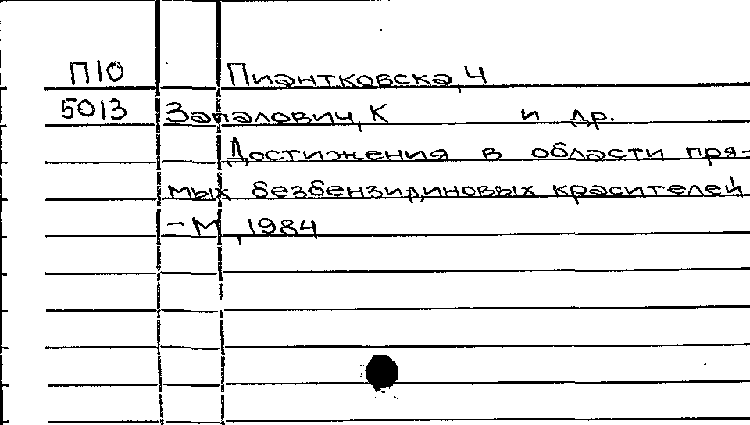 П10 Пиантковска, Ч
5013 Запалович, К и др.
Достижения в области пря-
мых безбензидиновых красителей
- М, 1984